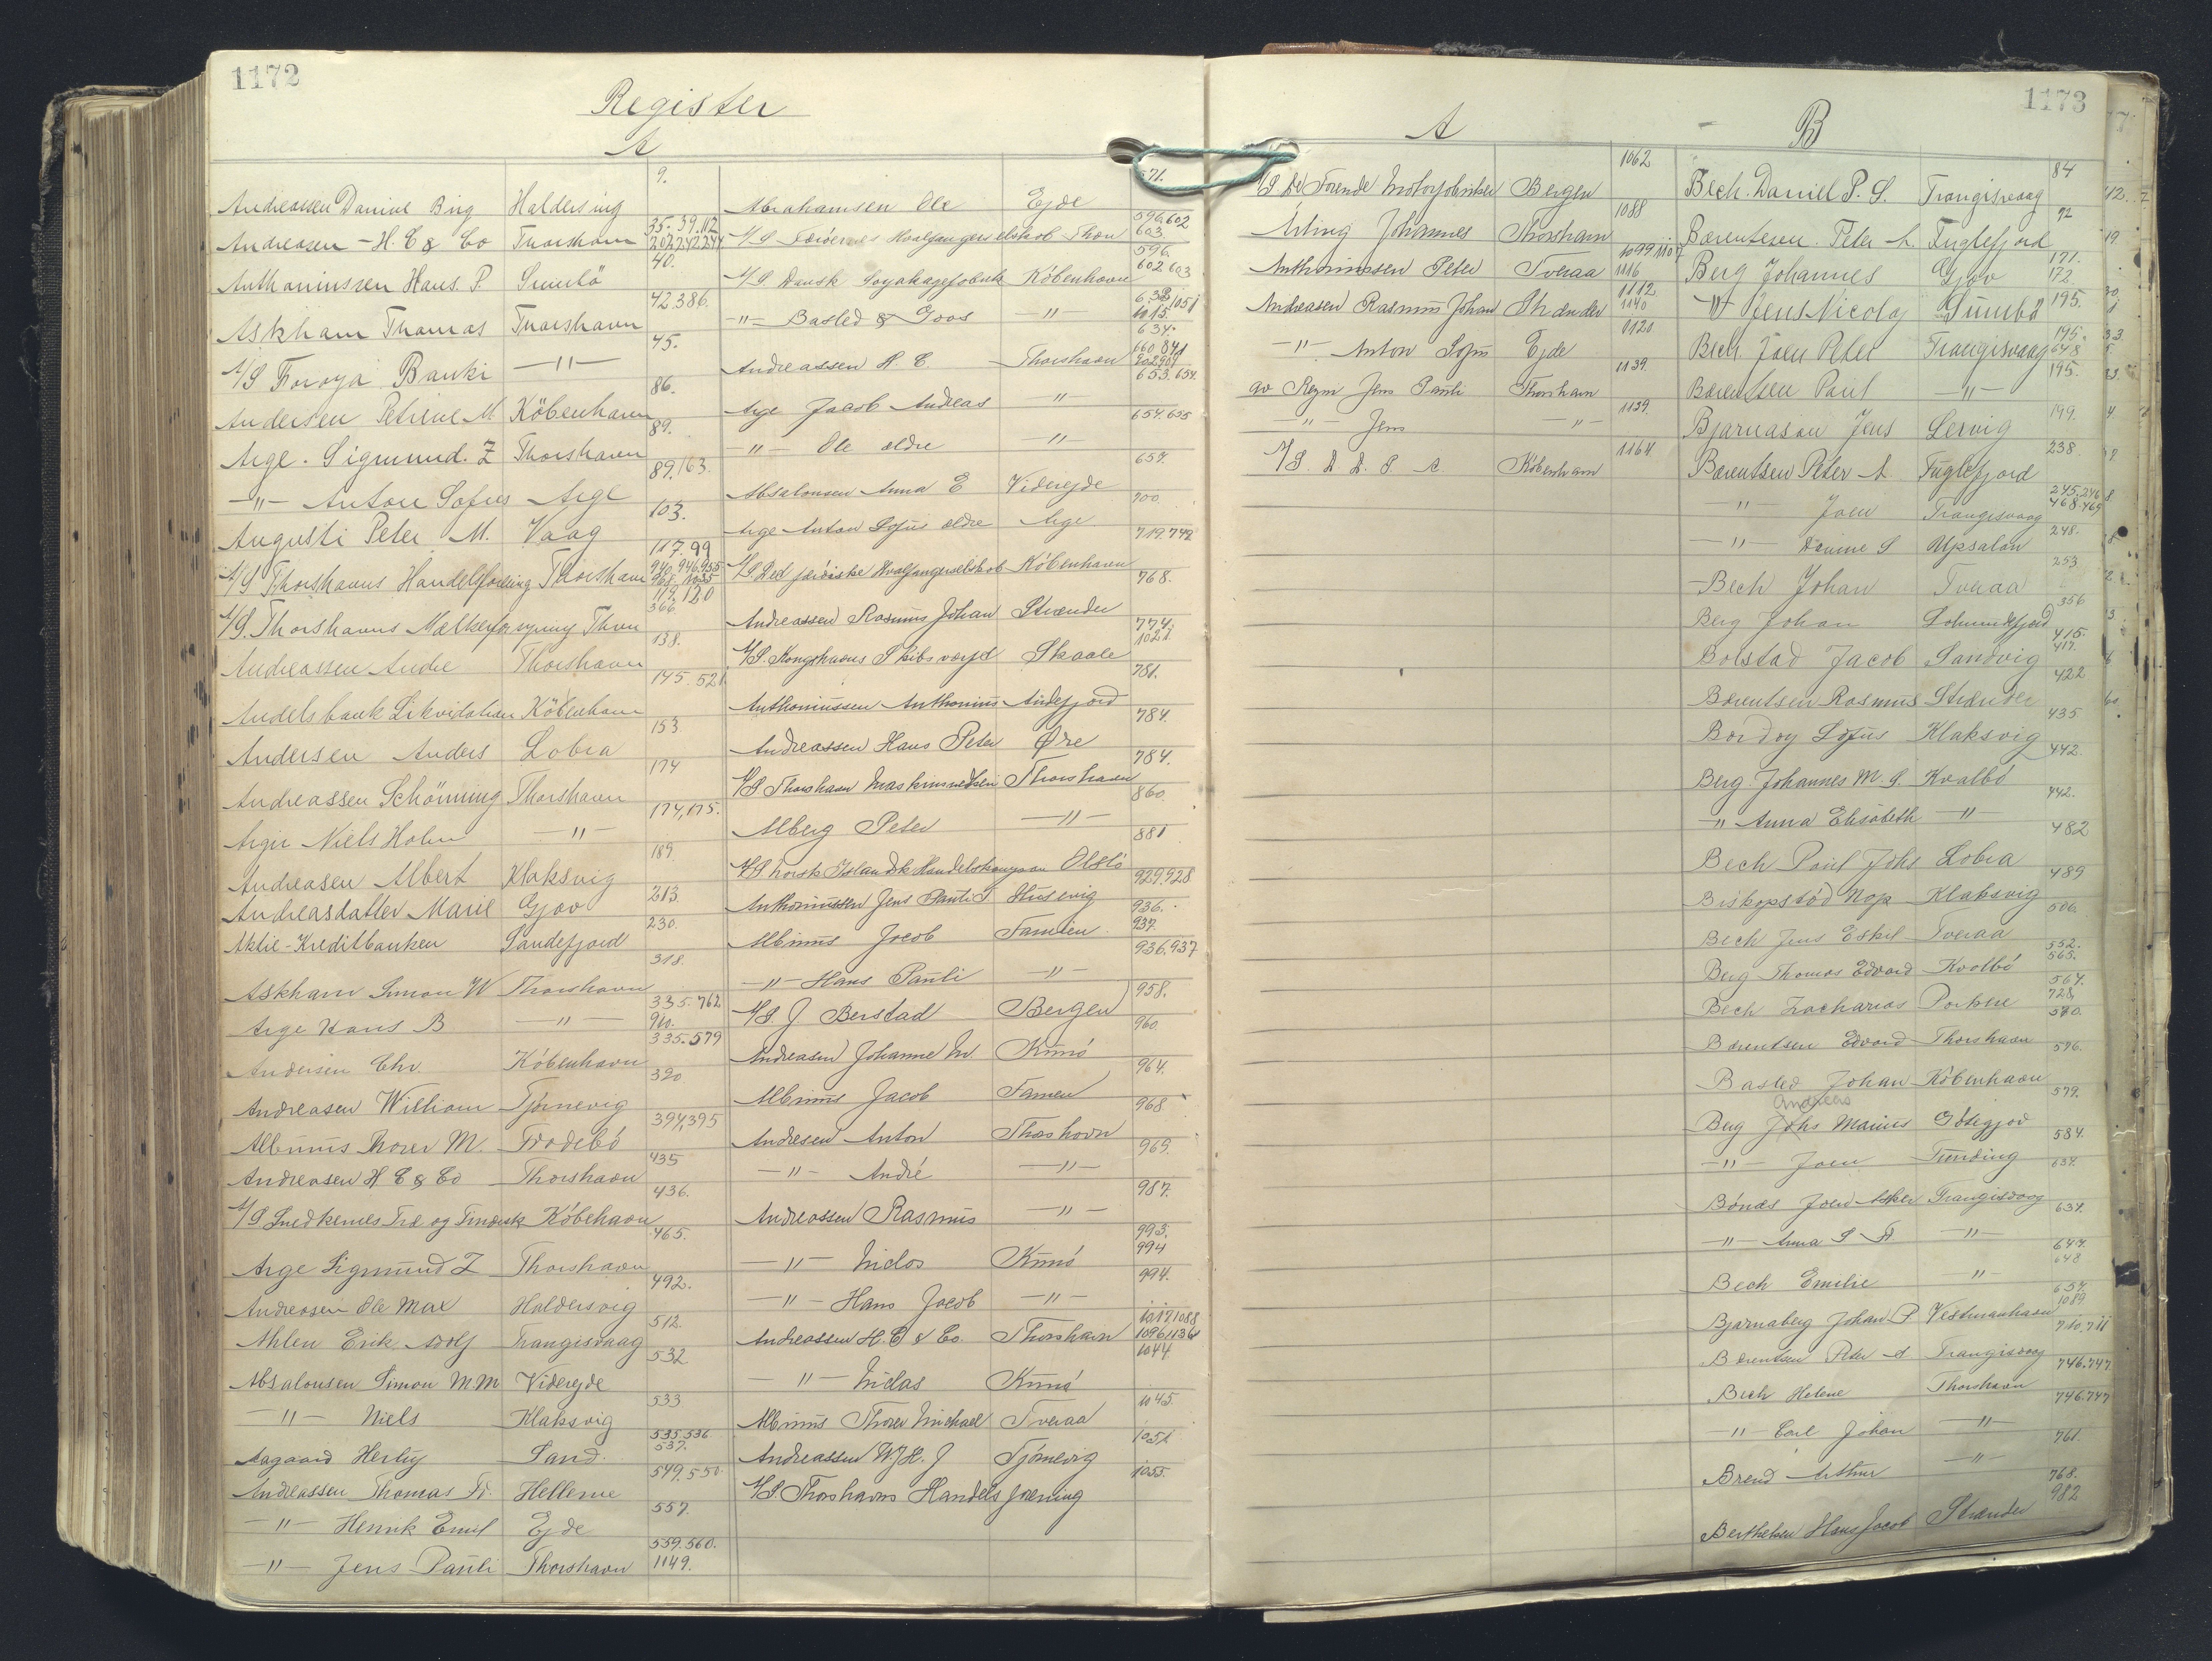 1172
Register
A
Andreassen Daniel Birg Haldersvig 9.
Andreasen - H. C & Co Thorshavn 35. 39. 112 202.242.244
Anthoniussen Hans P. Sumbö 40.
Askham Thomas Thorshavn 42.386.
A/S Föroya Banki —"— 45.
Andersen Petrine M. Köbenhavn 86.
Arge. Sigmund. Z Thorshavn 89.
—"— Anton Sofus Arge 89.163.
Augusti Peter M. Vaag 103.
A/S Thorshavns Handelsforening Thorshavn 117.99 940.946.955 968. 1035
A/S. Thorshavns Mælkeforsyning Thvn 119.120 366
Andreassen Andre Thorshavn 138.
Andelsbank Likvidation Köbenhavn 145. 521
Andersen Anders Lobra 153
Andreassen Schönning Thorshavn 174
Argir Niels Holm —"— 174,175.
Andreasen Albert Klaksvig 189
Andreasdatter Marie Gjov 213.
Aktie-Kreditbanken Sandefjord 230.
Askham Simon W Thorshavn 318.
Arge Hans B —"— 335.762 960.
Andersen Chr. Köbenhavn 335.579
Andreasen William Tjörnevig 390
Albinus Thorer M. Frodebö 394,395
Andreasen H C & Co Thorshavn 435
A/S Snedkernes Træ og Finersk Köbehavn 436.
Arge Sigmund Z Thorshavn 465.
Andreasen Ole Max Haldersvig 492.
Ahlen Erik Adolf Trangisvaag 512.
Absalonsen Simon M.M Viderejde 532
—"— Niels Klaksvig 533
Aagaard Herluf Sand. 535.536 537.
Andreassen Thomas Fr. Hellerne 549.550
—"— Henrik Emil Ejde 557.
—"— Jens Pauli Thorshavn 559.560. 1149.
Abrahamsen Ole Ejde 571.
A/S Færöernes Hvalfangerselskab Thvn 596,602 603.
A/S Dansk Soyakagefabrik Köbenhavn 596. 602 603
—"— Basted & Goos —"— 1015 1051
Andreassen H. C. Thorshavn 634. 660 841 902.907
Arge Jacob Andreas —"— 653.654.
—"— Ole ældre —"— 654.655
Absalonsen Anna E Viderejde 657.
Arge Anton Sofus ældre Arge 700
A/S Det færöiske Hvalfangerselskab Köbenhavn 719.742
Andreassen Rasmus Johan Strænder 768.
A/S. Kongshavns Skibsværft Skaale 774. 1021
Anthoniussen Anthonius Andefjord 781.
Andreassen Hans Peter Öre 784.
A/S Thorshavn Maskinsnedkeri Thorshavn 784.
Alberg Peter —"— 860
A/S Norsk Islandsk Handelskompani Olslo 881
Anthoniussen Jens Pauli J Husevig 929.928
Albinus Jacob Famien. 936. 937.
—"— Hans Pauli —"— 936.937
A/S J Berstad Bergen 958.
Andreasen Johanne M. Kunö 960
Albinus Jacob Famien 964.
Andresen Anton Thorshavn 968
—"— André —"— 969.
Andreassen Rasmus —"— 987.
—"— Niclas Kunö 993. 994
—"— Hans Jacob —"— 994.
Andreassen H. C & Co. Thorshavn 1017.1088 1096.1136
—"— Niclas Kunö 1044
Albinus Thorer Michael Tveraa 1045.
Andreassen W. H. J Tjörnevig 1051
A/S. Thorshavns Handelsforening 1055.
1173
A
A/S. De Forende Motorfabriker Bergen 1062
Arting Johannes Thorshavn 1088
Anthoniussen Peter Tveraa 1099.1107 1116
Andreasen Rasmus Johan Strænder 1112 1140
—"— Anton Sofus Ejde 1120
av Reyn Jens Pauli Thorshavn 1139.
—"— Jens —"— 1139.
A/S. D. D. P. A. Köbenhavn 1164
B
Bech. Daniel P. S. Trangisvaag 84
Bærentsen. Peter A. Fuglefjord 92
Berg Johannes Gjov 171.
W Jens Nicolaj Sumbö 172
Bech Joen Peter Trangisvaag 195.
Bærentsen Paul —"— 195. 648
Bjarnason Jens Lervig 195.
Bærentsen Peter A. Fuglefjord 199.
—"— Joen Trangisvaag 238
—"— Daniel S Upsalan 245.246 468.469 248.
Bech Johan Tveraa 253
Berg Johan Lohmundefjord 356
Bolstad Jacob Sandvig 415. 417.
Bærentsen Rasmus Strænder 422
Bordoy Sofus Klaksvig 435
Berg Johannes M. S. Kvalbö 442.
—"— Anna Elisabeth —"— 442.
Bech Poul Johs Lobra 482
Biskopstöd Nop Klaksvig 489
Bech Jens Eskil Tveraa 506
Berg Thomas Edvard Kvalbö 552. 565.
Bech Zacharias Porkere 567. 728
Bærentsen Edvard Thorshavn 570.
Basted Johan Köbenhavn 576.
Andreas
Berg Johs Marius Götegjov 579.
—"— Joen Funding 584.
Bönæs Joen Asker Trangisvaag 634.
—"— Anna S. F. —"— 634.
Bech Emilie —"— 647. 648
Bjarnaberg Johan P Vestmanhavn 657. 1089
Bærentsen Peter A Trangisvaag 710.711
Bech Helene Thorshavn 746.747
—"— Carl Johan —"— 746.747
Brend Arthur —"— 761.
Berthelsen Hans Jacob Strænder 768. 982